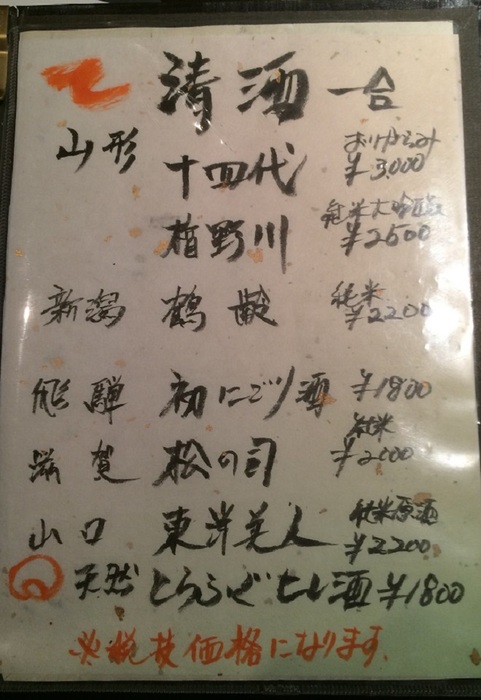 清酒 一合
山形 十四代 おりからみ ¥3,000
楯野川 純米大吟醸 ¥2500
新潟 鶴齢 純米 ¥2200
飛騨 初にごり酒 ¥1800
滋賀 松の司 純米 ¥2000
山口 東洋美人 純米原酒 ¥2200
天然 とらふぐヒレ酒 ¥1800
※税抜価格になります。